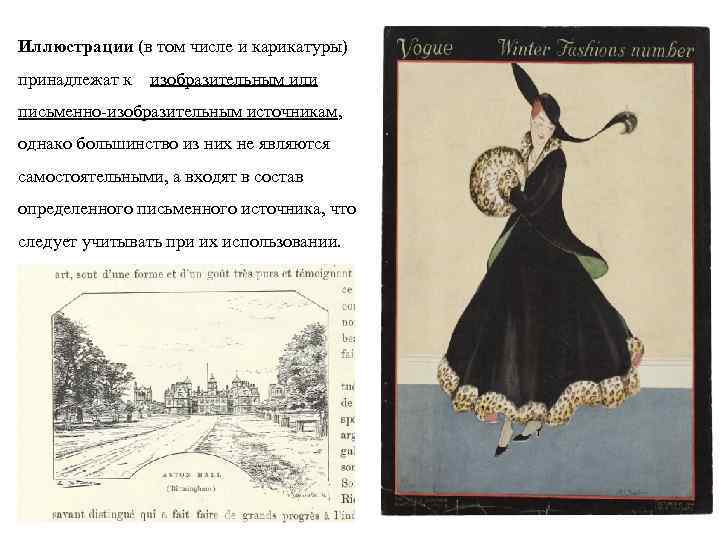 Иллюстрации (в том числе и карикатуры)
принадлежат к изобразительным или
письменно-изобразительным источникам,
однако большинство из них не являются
самостоятельными, а входят в состав
определенного письменного источника, что
следует учитывать при их использовании.
art, sont d'une forme et d'un goût très purs et témoignent
ce
con
nou
bea
fair
tue
de
Spa
arg
quil
So
Ric
ASTON HALL
(Birmingham)
savant distingué qui a fait faire de grands progrès à l'ind
Vogue Winter Fashions number